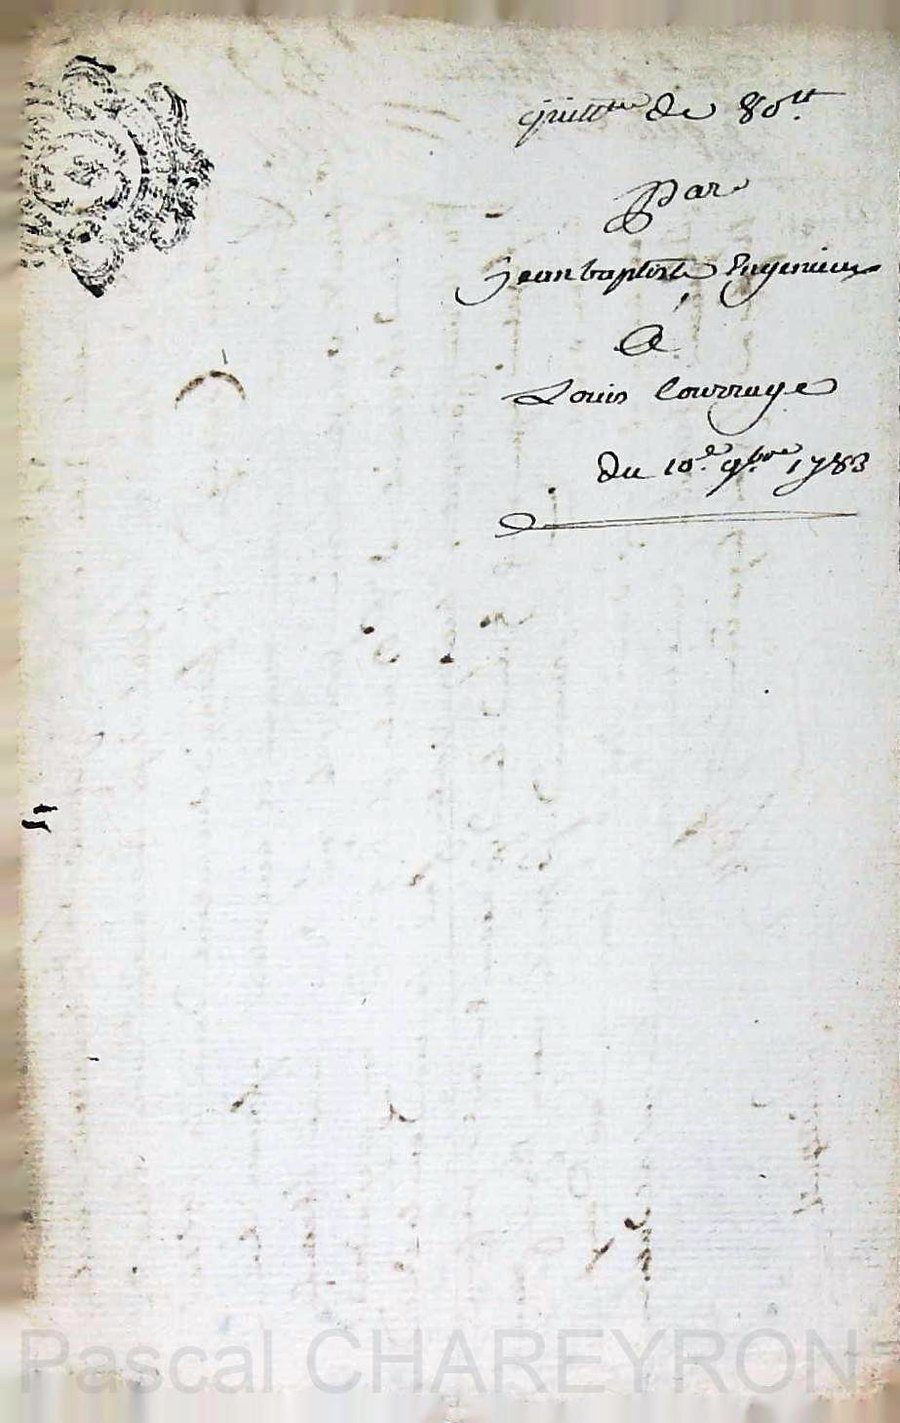 quittce de 80lt
par
jean baptiste Eugenieux
A
Louis Courruge
du 10.e 9.bre 1783
Pascal CHAREYRON